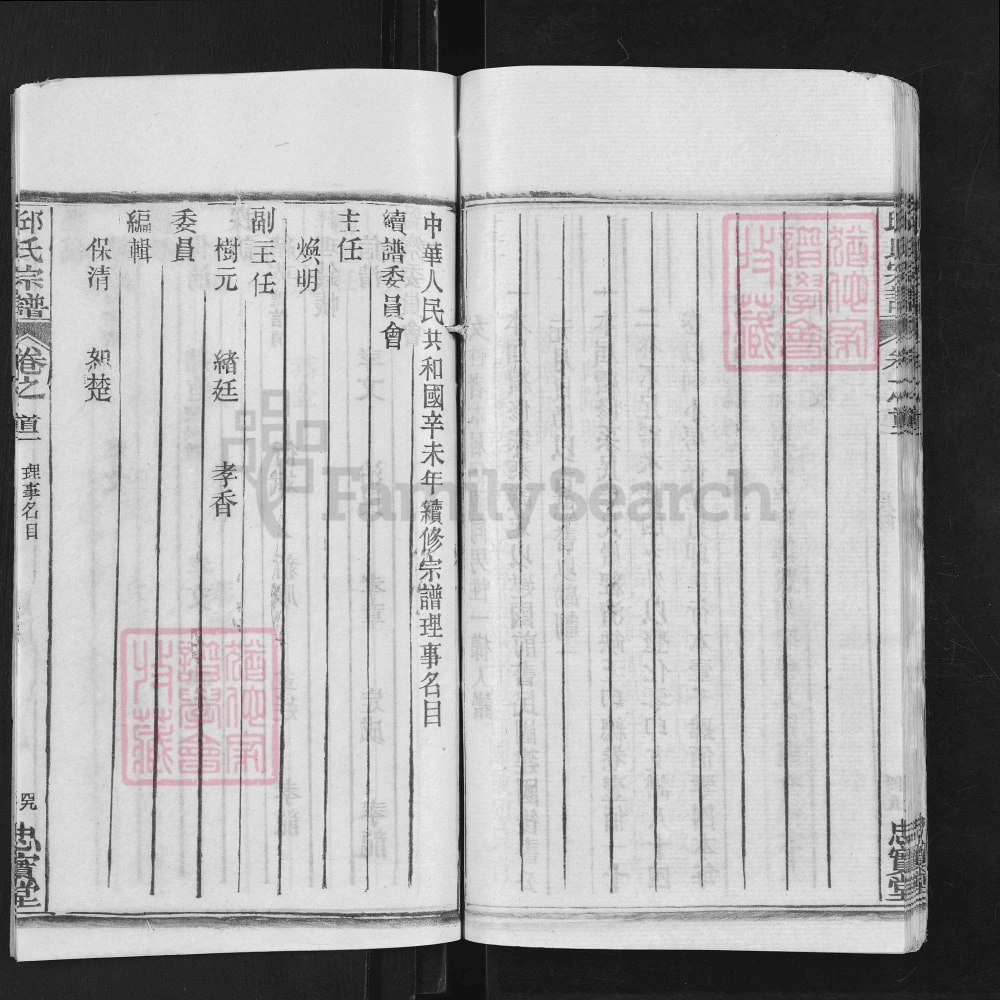 中華人民共和國辛未年續修宗譜理事名目
續譜委員會
主任
煥明
副主任
樹元 緒廷 孝香
委員
編輯
保清 恕楚
邱氏宗譜 卷之首 理事名目 忠實堂
FamilySearch